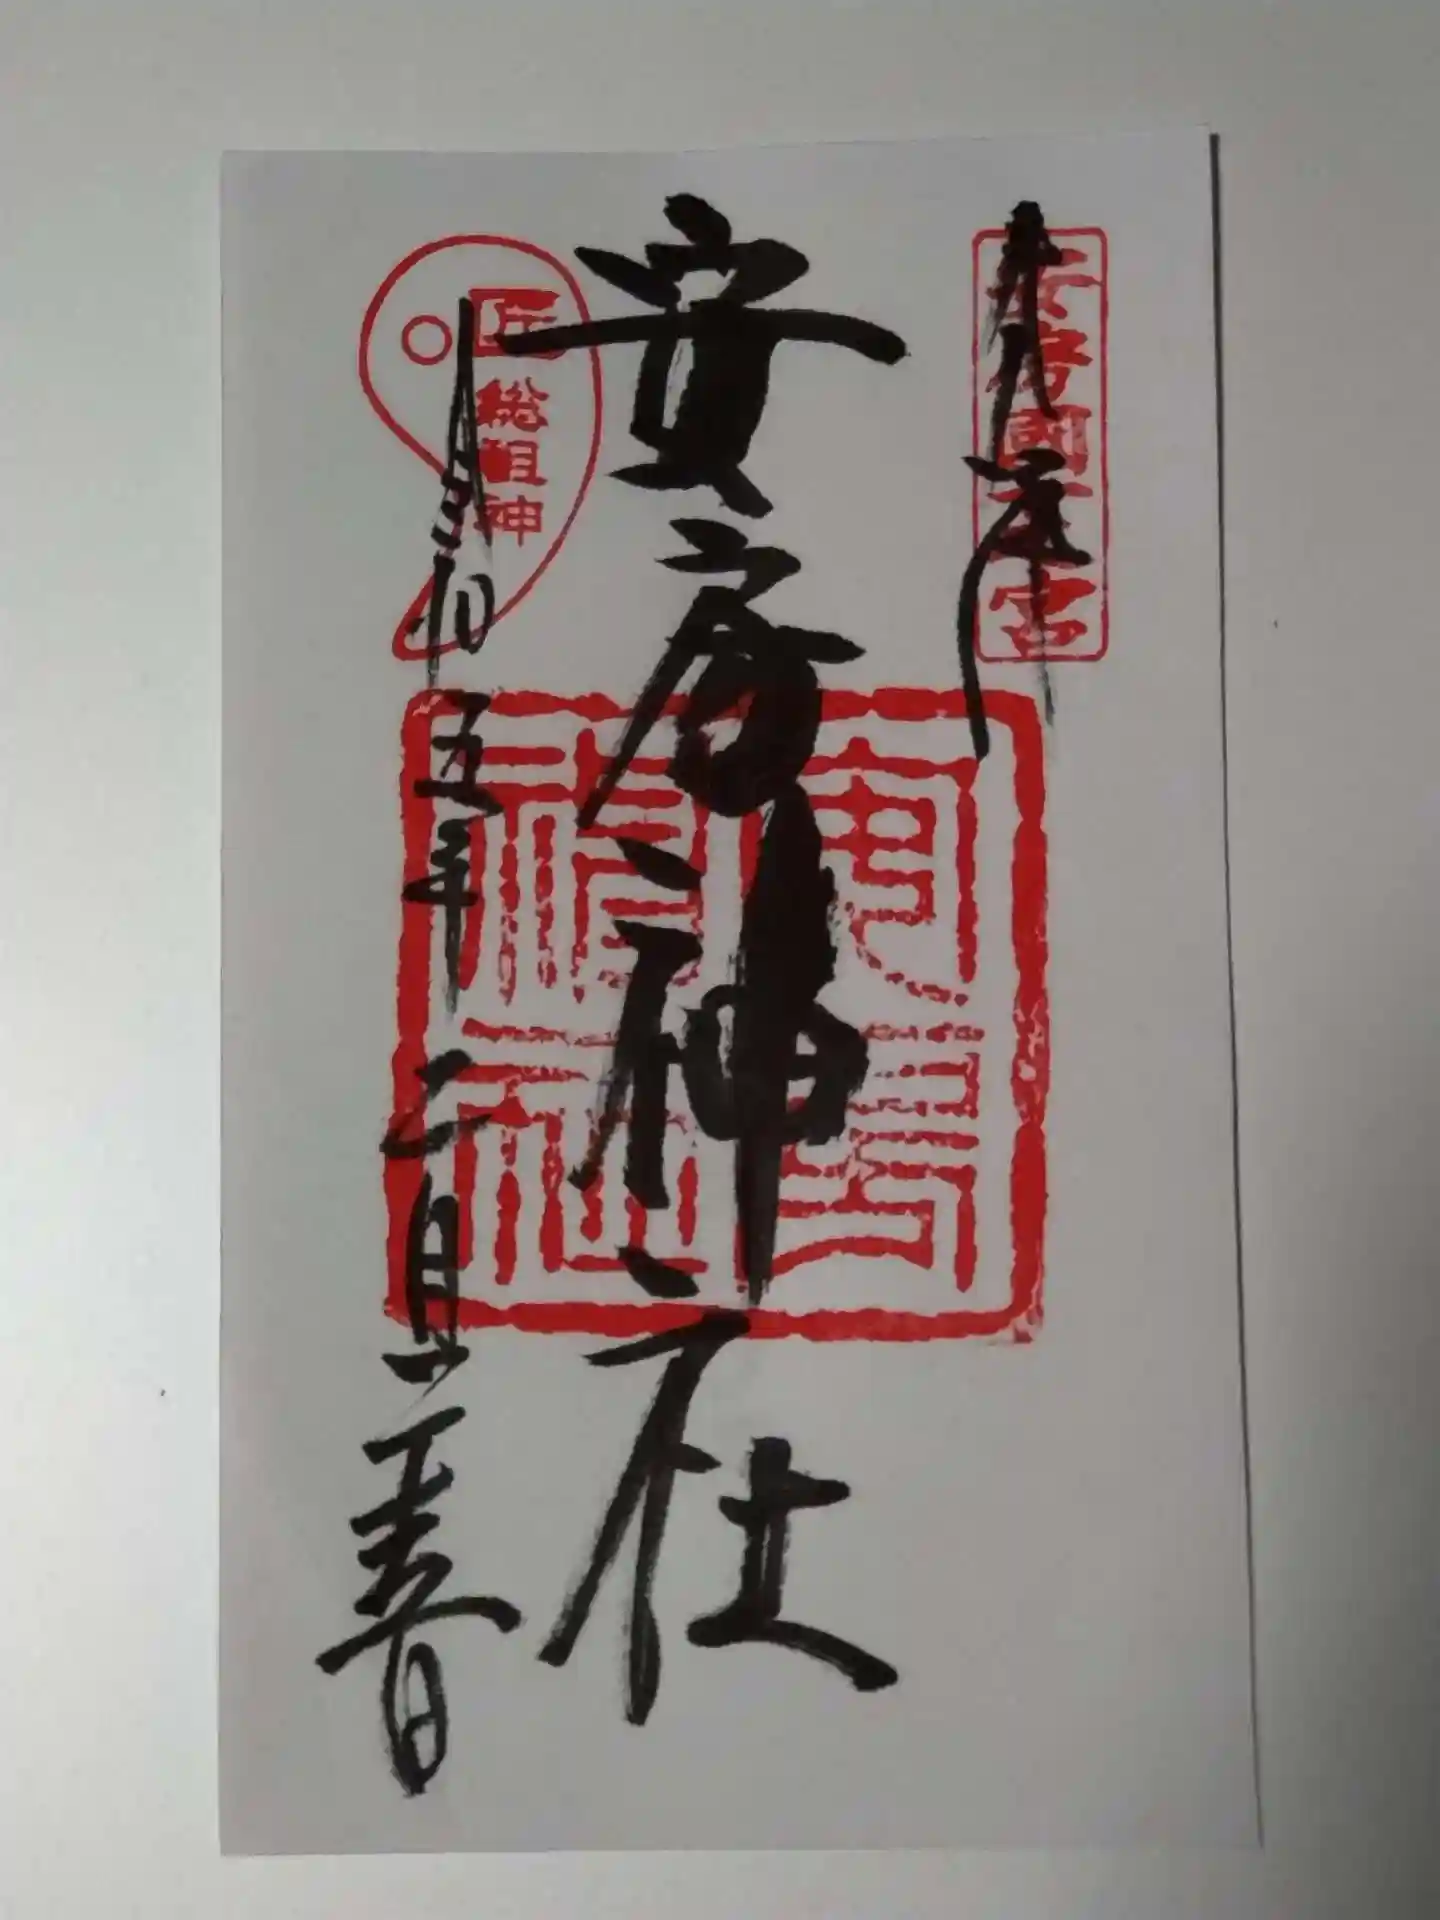 奉拝
安房國一之宮
安房神社
安房神社
匠総祖神
令和五年二月二十五日